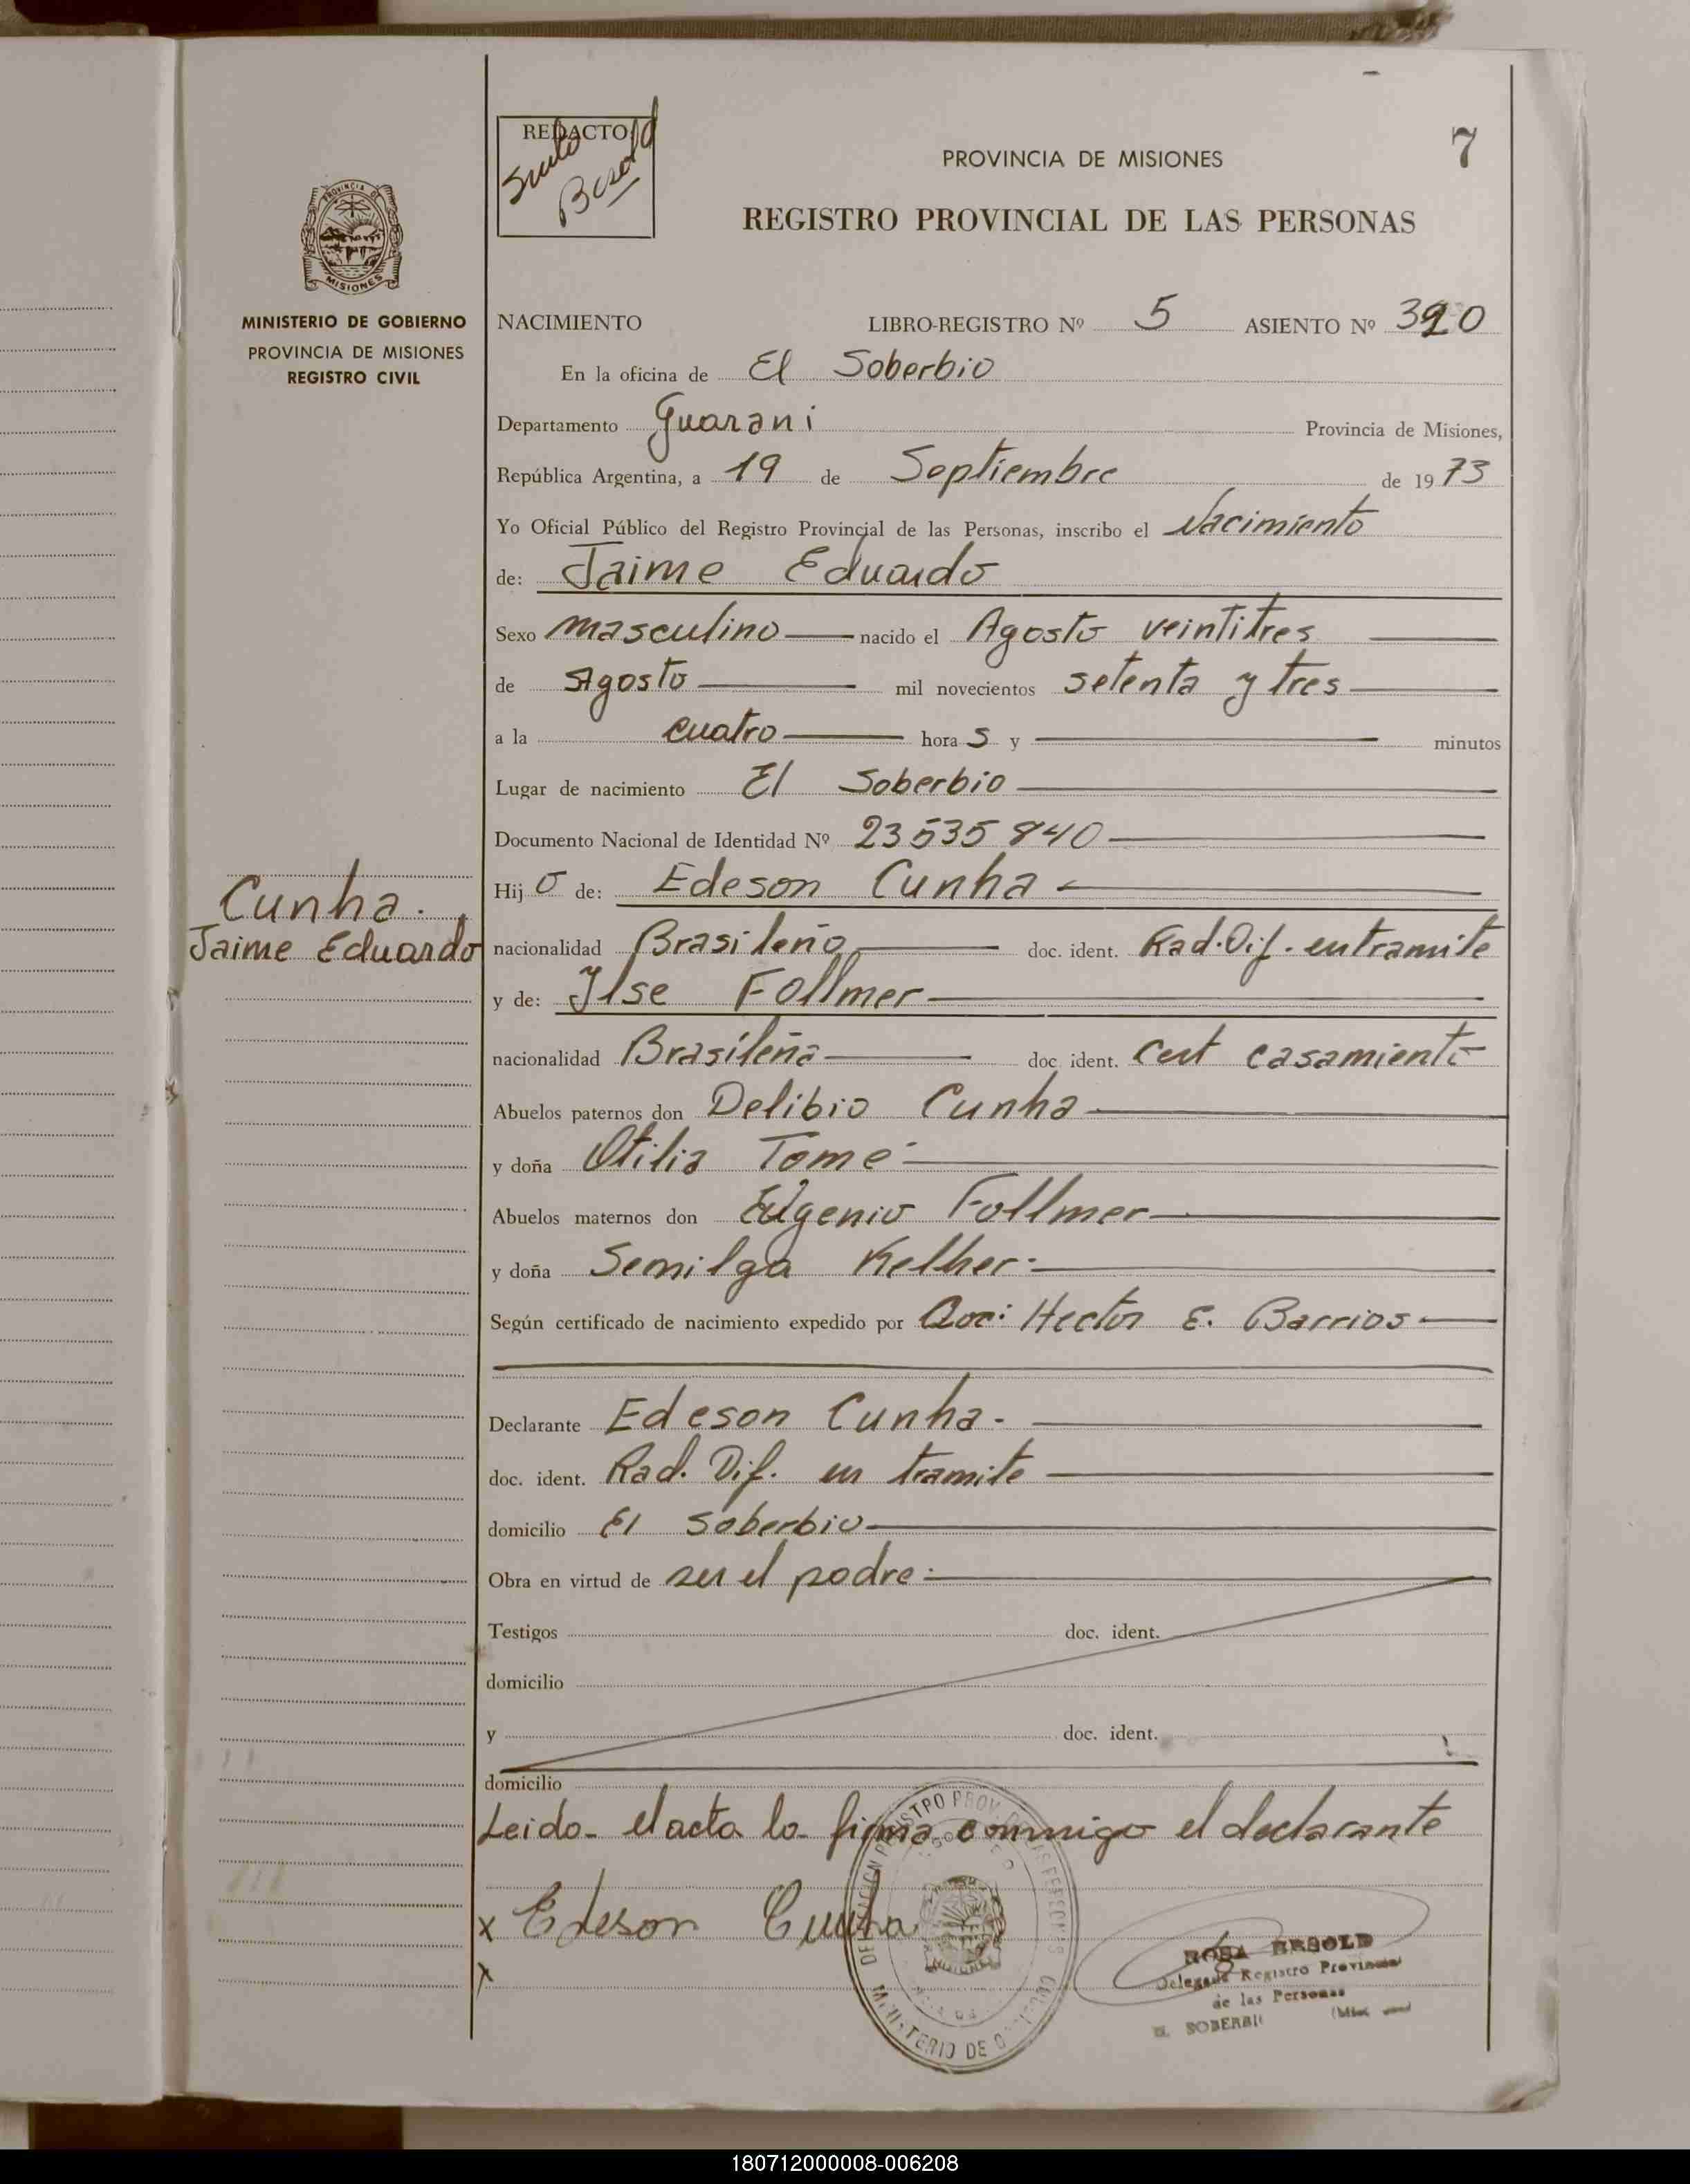 7
REDACTO:
Besold
PROVINCIA DE MISIONES
REGISTRO PROVINCIAL DE LAS PERSONAS
PROVINCIA DE
MISIONES
MINISTERIO DE GOBIERNO
PROVINCIA DE MISIONES
REGISTRO CIVIL
NACIMIENTO LIBRO-REGISTRO Nº 5 ASIENTO Nº 320
En la oficina de El Soberbio
Departamento Guarani Provincia de Misiones,
República Argentina, a 19 de Septiembre de 1973
Yo Oficial Público del Registro Provincial de las Personas, inscribo el Nacimiento
de: Jaime Eduardo
Sexo masculino nacido el Agosto veintitres
de Agosto mil novecientos setenta y tres
a la cuatro horas y minutos
Lugar de nacimiento El Soberbio
Documento Nacional de Identidad Nº 23535840
Hijo de: Edeson Cunha
Cunha.
Jaime Eduardo
nacionalidad Brasileño doc. ident. Rad. Dif. en tramite
y de: Ilse Follmer
nacionalidad Brasileña doc. ident. Cert casamiento
Abuelos paternos don Delibio Cunha
y doña Otilia Tome
Abuelos maternos don Eugenio Follmer
y doña Semilga Kelher
Según certificado de nacimiento expedido por Hector E. Barrios
Declarante Edeson Cunha.
doc. ident. Rad. Dif. en tramite
domicilio El Soberbio
Obra en virtud de ser el padre
Testigos doc. ident.
domicilio
y doc. ident.
domicilio
Leido el acta lo firma conmigo el declarante
x Edeson Cunha
x
MINISTERIO DE
MISIONES
ROSA BESOLD
Delegada Registro Provincial
de las Personas
EL SOBERBIO
180712000008-006208